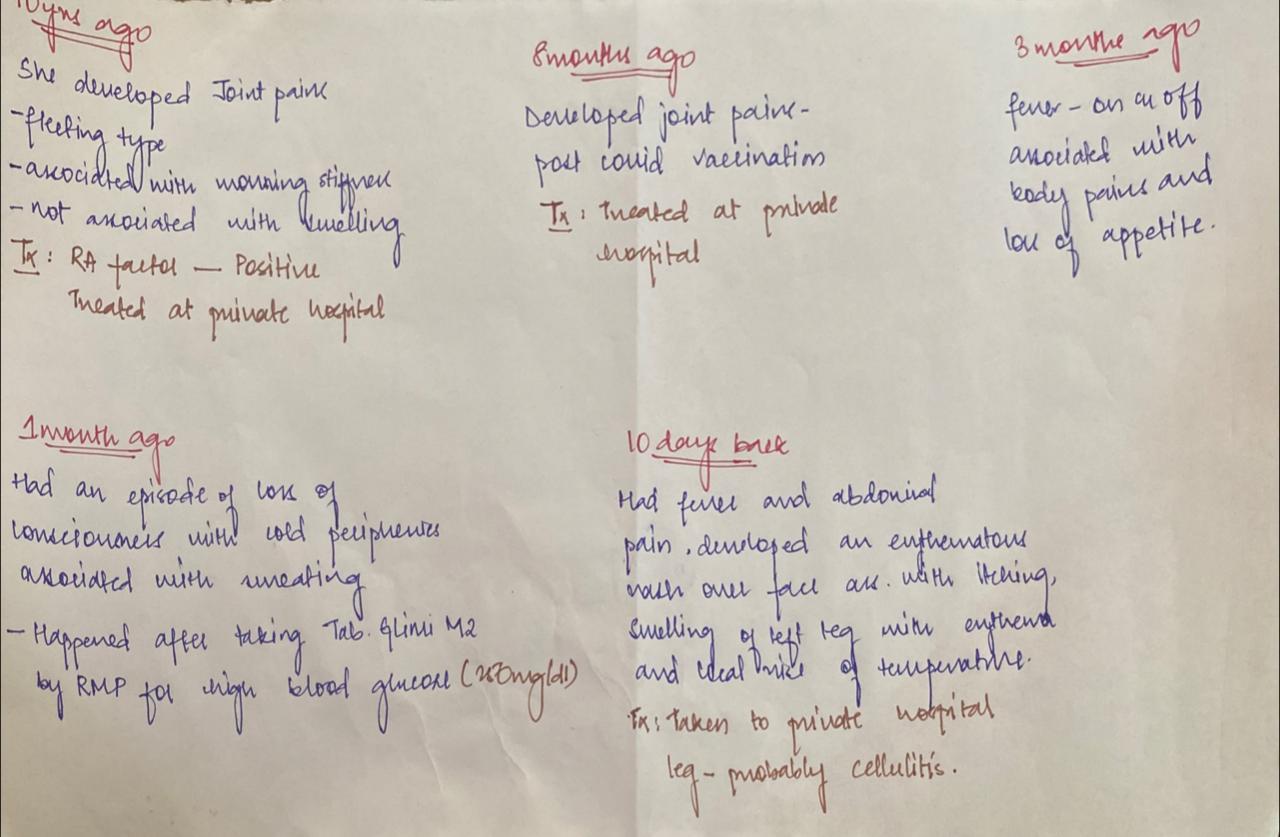 10yrs ago
She developed Joint pains
-fleeting type
-associated with mourning stiffness
- not associated with swelling
Tx : RA factor — Positive
Treated at private hospital
8months ago
Developed joint pains-
post covid vaccination
Tx : Treated at private
hospital
3 months ago
fever - on an off
associated with
body pains and
loss of appetite.
1month ago
Had an episode of loss of
consciousness with cold peripheries
associated with sweating
- Happened after taking Tab. Glimi M2
by RMP for high blood glucose (250mg/dl)
10 days back
Had fever and abdominal
pain, developed an erythematous
rash over face ass. with itching,
swelling of left leg with erythema
and local rise of temperature.
Tx : Taken to private hospital
leg - probably cellulitis.